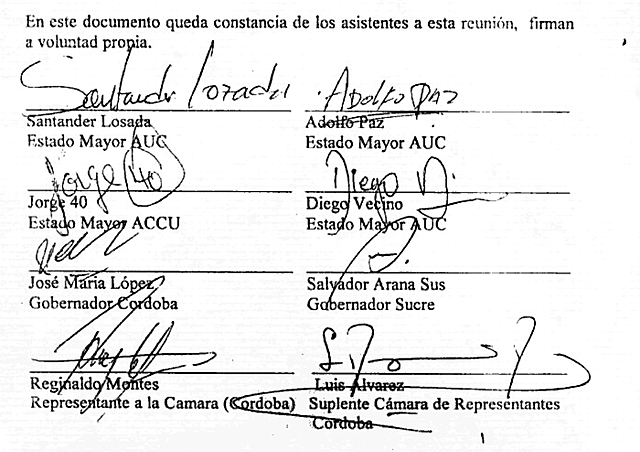 En este documento queda constancia de los asistentes a esta reunión, firman
a voluntad propia.
Santander Lozada
Adolfo Paz
Santander Losada
Adolfo Paz
Estado Mayor AUC
Estado Mayor AUC
Jorge 40
Diego V.
Jorge 40
Diego Vecino
Estado Mayor ACCU
Estado Mayor AUC
José Maria López
Salvador Arana Sus
Gobernador Cordoba
Gobernador Sucre
Reginaldo Montes
Luis Alvarez
Representante a la Camara (Cordoba)
Suplente Cámara de Representantes
Cordoba